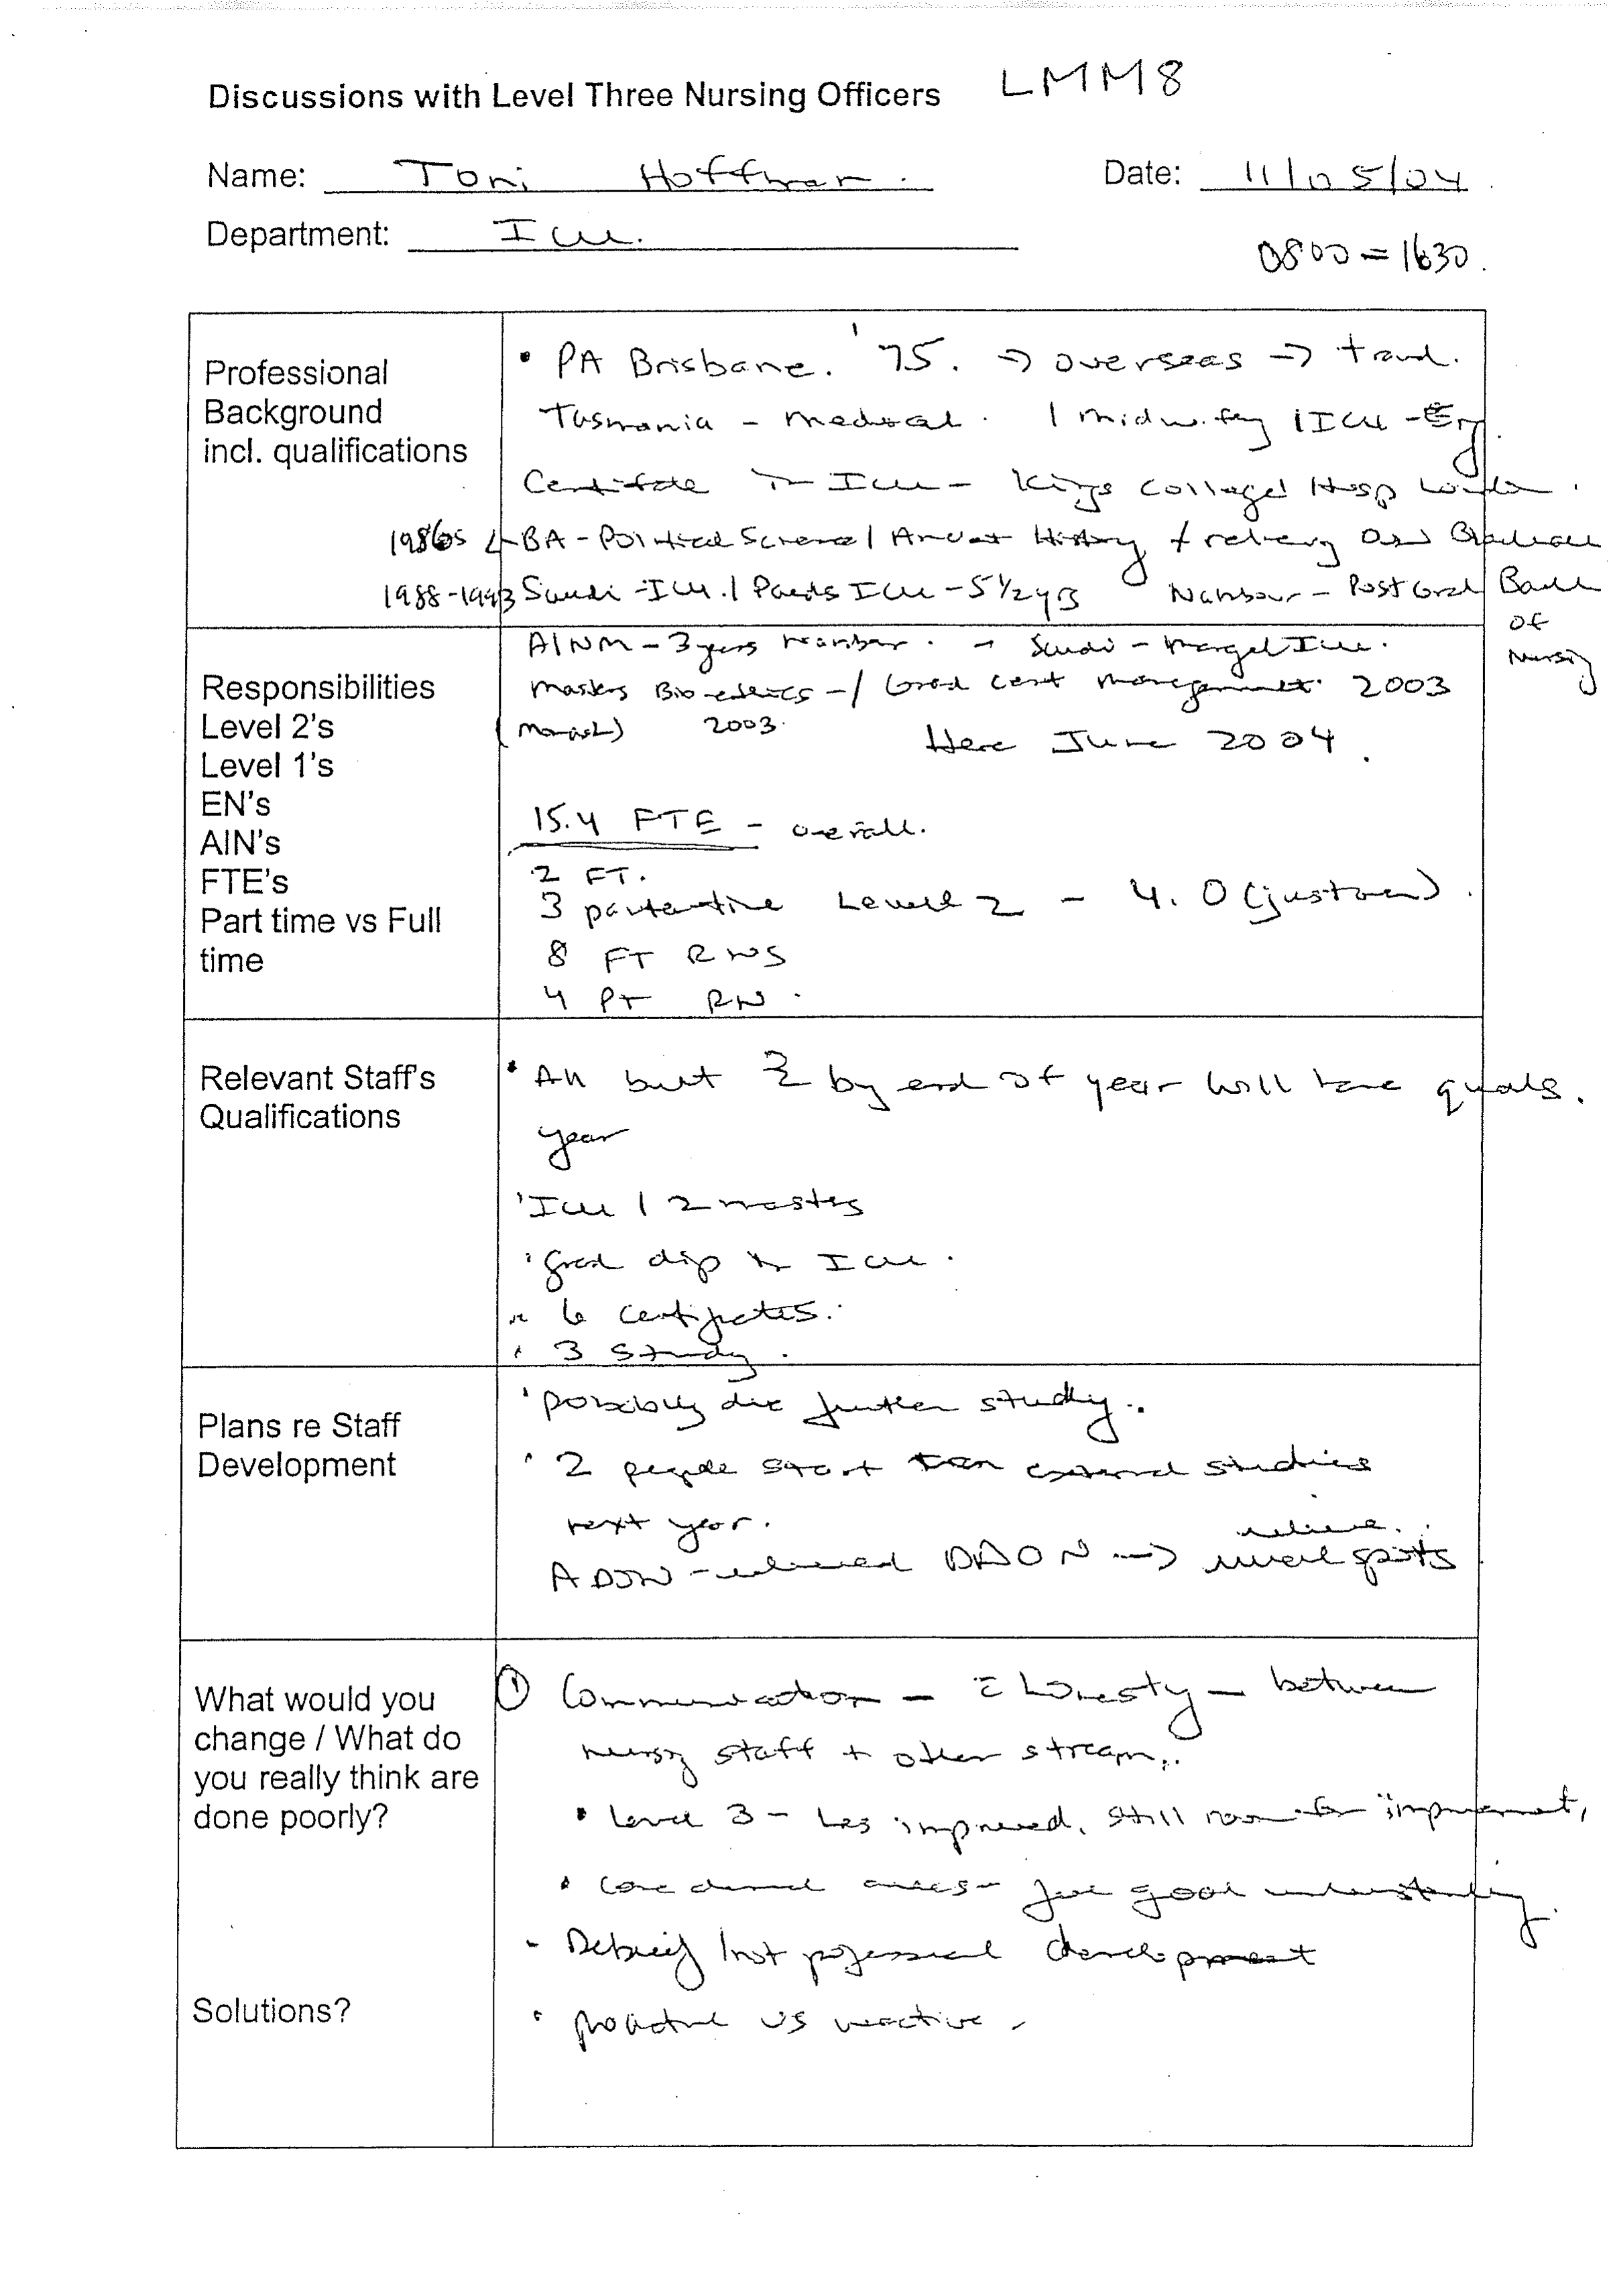 Discussions with Level Three Nursing Officers LMM8
Name: Toni Hoffman. Date: 11/05/04
Department: ICU.
0800 = 1630.
Professional
Background
incl. qualifications
• PA Brisbane. '75. → overseas → travel.
Tasmania - medical. 1 midwifery 1 ICU - Eng.
Certificate in ICU - Kings College Hosp London.
1980s BA - Political Science / Ancient History
1988-1993 Saudi - ICU. / Paeds ICU - 5 1/2 yrs Nambour - Post Grad Bach
of
Nursing
Responsibilities
Level 2's
Level 1's
EN's
AIN's
FTE's
Part time vs Full
time
A/NM - 3 years Nambour. → Saudi - ICU.
Masters Bio-ethics - / Grad cert management 2003
(Monash) 2003.
Here June 2004.
15.4 FTE - overall.
2 FT.
3 part-time Level 2 - 4.0
8 FT RNS
4 PT RN.
Relevant Staff's
Qualifications
• All but 2 by end of year will have quals.
year
• ICU / 2 masters
• grad dip in ICU.
• 6 certificates.
• 3 study.
Plans re Staff
Development
• possibly further study.
• 2 people start studies
next year.
relieve.
ADON - relieved →
What would you
change / What do
you really think are
done poorly?
① Communication - honesty - between
nursing staff + other stream.
• Level 3 - has improved, still room for improvement,
• good understanding.
- Debrief / not professional development
Solutions?
• proactive vs reactive.